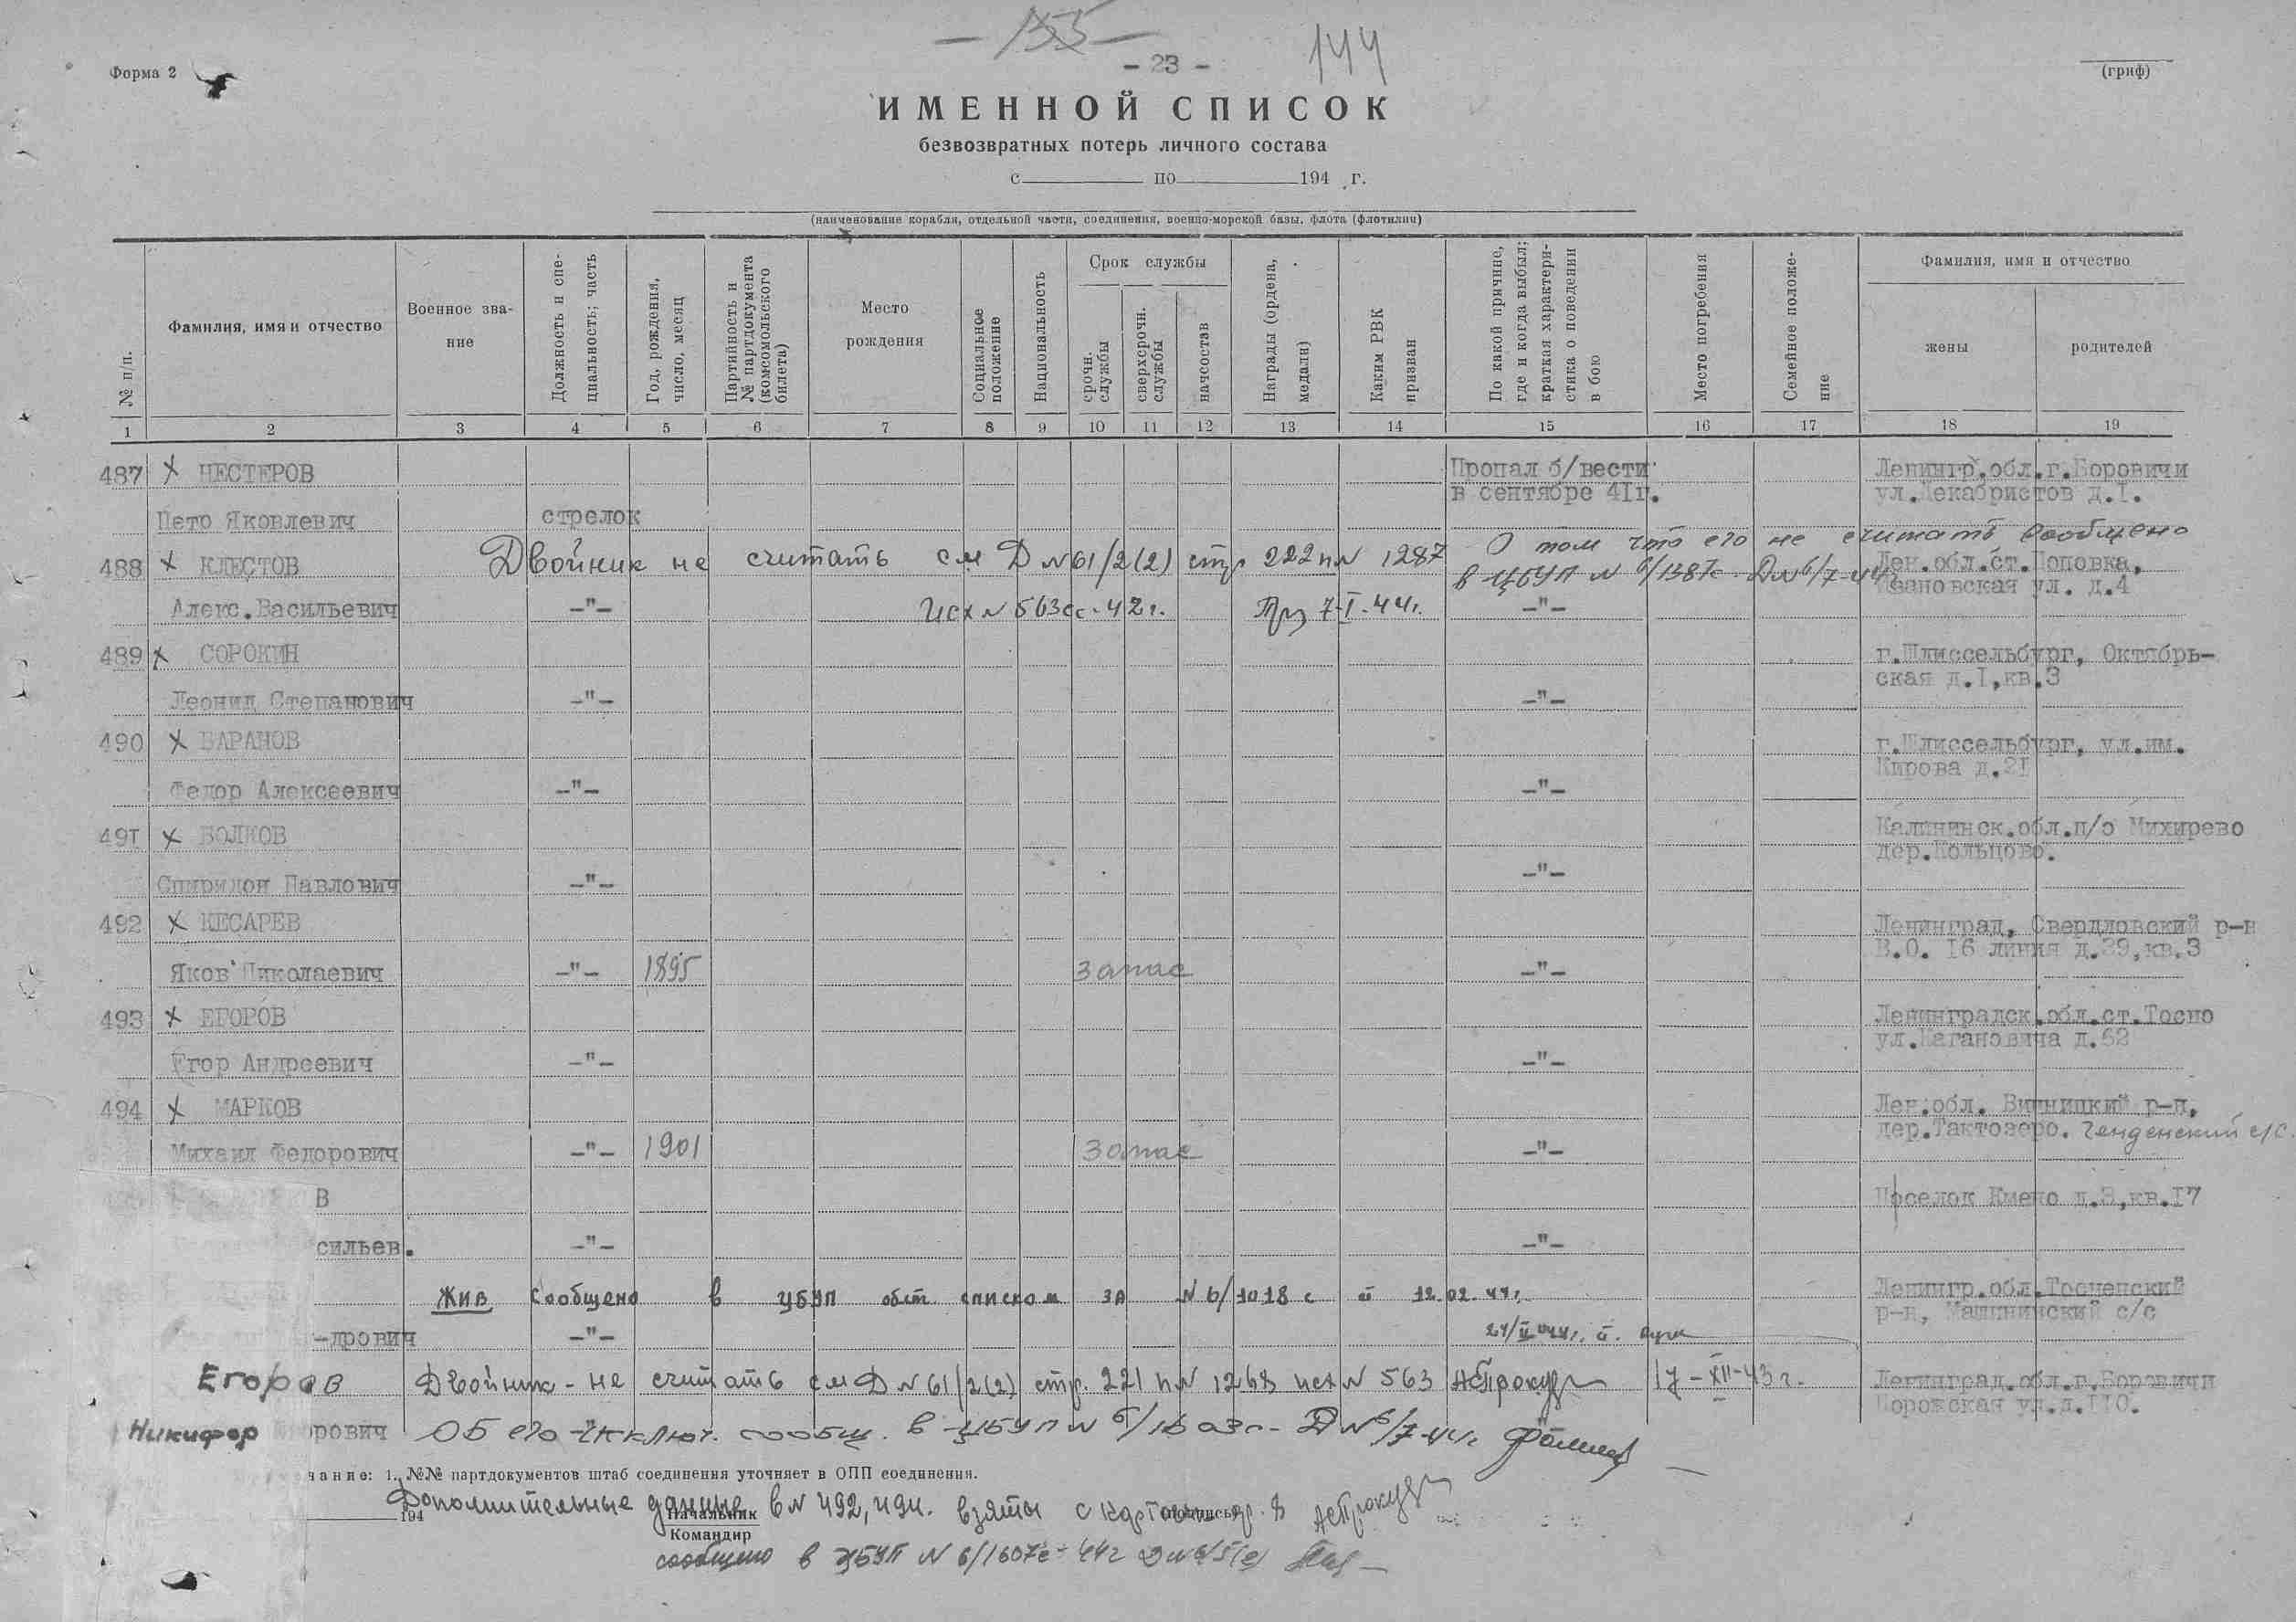 155
- 23 -
144
Форма 2
(гриф)
ИМЕННОЙ СПИСОК
безвозвратных потерь личного состава
с по 194 г.
(наименование корабля, отдельной части, соединения, военно-морской базы, флота (флотилии)
№ п/п.
Фамилия, имя и отчество
Военное зва-
ние
Должность и спе-
циальность; часть
Год, рождения,
число, месяц
Партийность и
№ партдокумента
(комсомольского
билета)
Место
рождения
Социальное
положение
Национальность
Срок службы
срочн.
службы
сверхсрочн.
службы
начсостав
Награды (ордена,
медали)
Каким РВК
призван
По какой причине,
где и когда выбыл;
краткая характери-
стика о поведении
в бою
Место погребения
Семейное положе-
ние
Фамилия, имя и отчество
жены
родителей
1 2 3 4 5 6 7 8 9 10 11 12 13 14 15 16 17 18 19
487 НЕСТЕРОВ Пропал б/вести Ленингр.обл.г.Боровичи
в сентябре 41г. ул.Декабристов д.1.
Петр Яковлевич стрелок
О том что его не считать сообщено
488 КЛЕСТОВ Двойник не считать см Д №61/2(2) стр 222 п№ 1287 Лен.обл.ст.Поповка,
в ЦБУП № 6/1387с Ивановская ул. д.4
Алекс.Васильевич -"- Исх № 563сс-42г. 7-I-44г. -"-
489 СОРОКИН г.Шлиссельбург, Октябрь-
ская д.1,кв.3
Леонид Степанович -"- -"-
490 БАРАНОВ г.Шлиссельбург, ул.им.
Кирова д.21
Федор Алексеевич -"- -"-
491 ВОЛКОВ Калининск.обл.п/о Михирево
дер.Кольцово.
Спиридон Павлович -"- -"-
492 КЕСАРЕВ Ленинград, Свердловский р-н
В.О. 16 линия д.39,кв.3
Яков Николаевич -"- 1895 запас -"-
493 ЕГОРОВ Ленинградск.обл.ст.Тосно
ул.Кагановича д.62
Егор Андреевич -"- -"-
494 МАРКОВ Лен.обл. Винницкий р-н,
дер.Тактозеро. с/с.
Михаил Федорович -"- 1901 запас -"-
В Поселок д.3,кв.17
сильев. -"- -"-
Жив сообщено в ЦБУП списком за № 6/1018 с 12.02.44г. Ленингр.обл.Тосненский
р-н, Машинский с/с
-дрович -"-
Егоров Двойник - не считать см Д №61/2(2) стр. 221 п№ 1268 исх № 563 17-XII-43г. Ленинград.обл.г.Боровичи
ул.д.110.
Никифор орович Об его исключ. сообщ. в ЦБУП №
чание: 1. №№ партдокументов штаб соединения уточняет в ОПП соединения.
Дополнительные данные в № 492, 494. взяты с карточки
194 Начальник
Командир
(подпись)
сообщено в ЦБУП № 6/1607с-44г